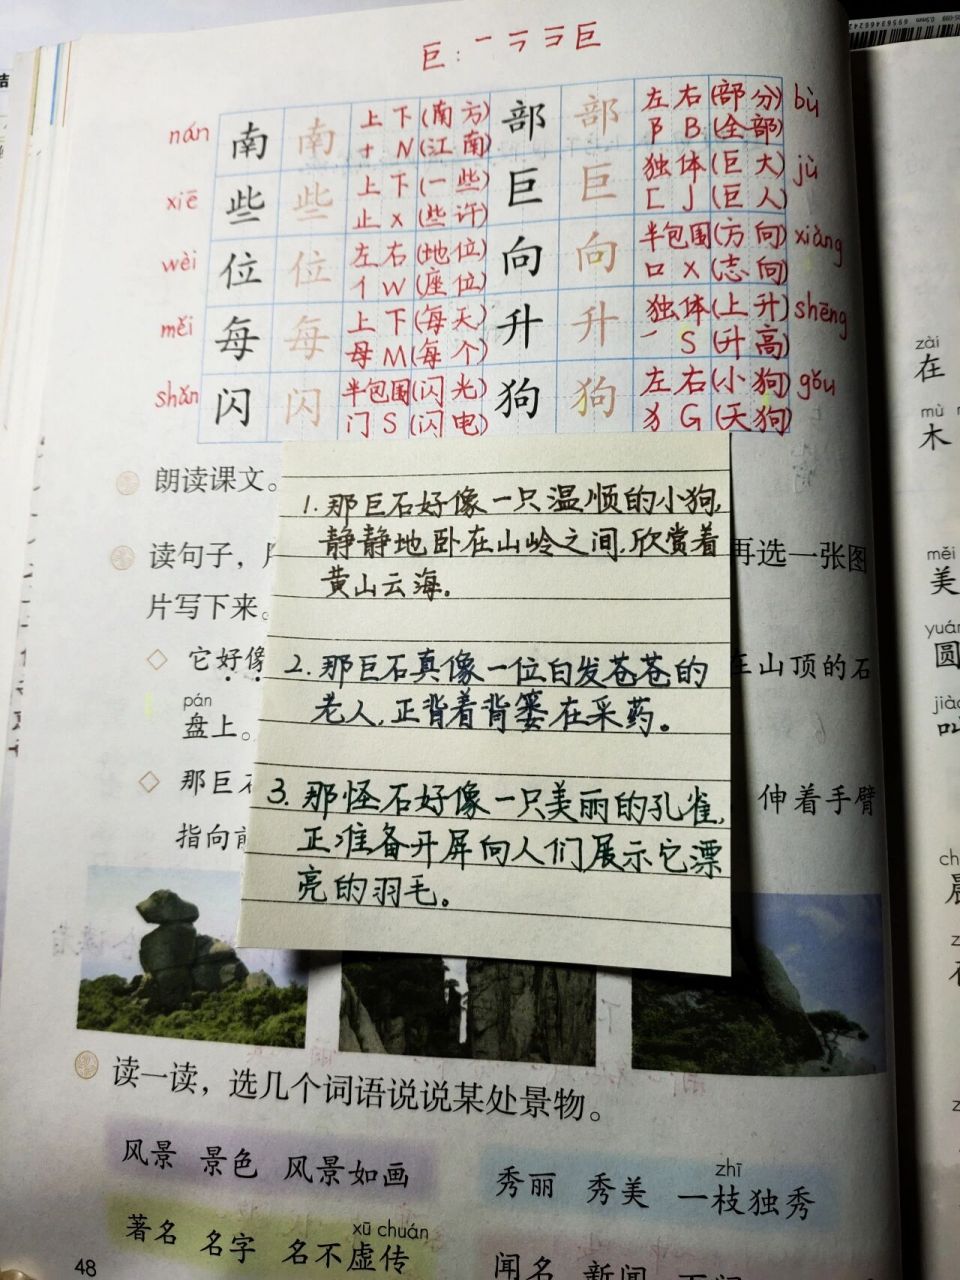 巨：一 コ ヨ 巨
nán 南 南 上下(南方) 部 部 左右(部分) bù
十 N (江南) 阝 B (全部)
xiē 些 些 上下(一些) 巨 巨 独体(巨大) jù
止 X (些许) 匚 J (巨人)
wèi 位 位 左右(地位) 向 向 半包围(方向) xiàng
亻 W (座位) 口 X (志向)
měi 每 每 上下(每天) 升 升 独体(上升) shēng
母 M (每个) 一 S (升高)
shǎn 闪 闪 半包围(闪光) 狗 狗 左右(小狗) gǒu
门 S (闪电) 犭 G (天狗)
朗读课文。
1.那巨石好像一只温顺的小狗,
静静地卧在山岭之间,欣赏着
黄山云海.
读句子， 再选一张图
片写下来。
2.那巨石真像一位白发苍苍的
老人,正背着背篓在采药。
它好像 山顶的石
pán
盘上。
3.那怪石好像一只美丽的孔雀,
正准备开屏向人们展示它漂
亮的羽毛。
那巨石 伸着手臂
指向前
读一读，选几个词语说说某处景物。
风景 景色 风景如画
zhī
秀丽 秀美 一枝独秀
xū chuán
著名 名字 名不虚传
闻名 新闻
48
zài
在
mù
木
měi
美
yuán
圆